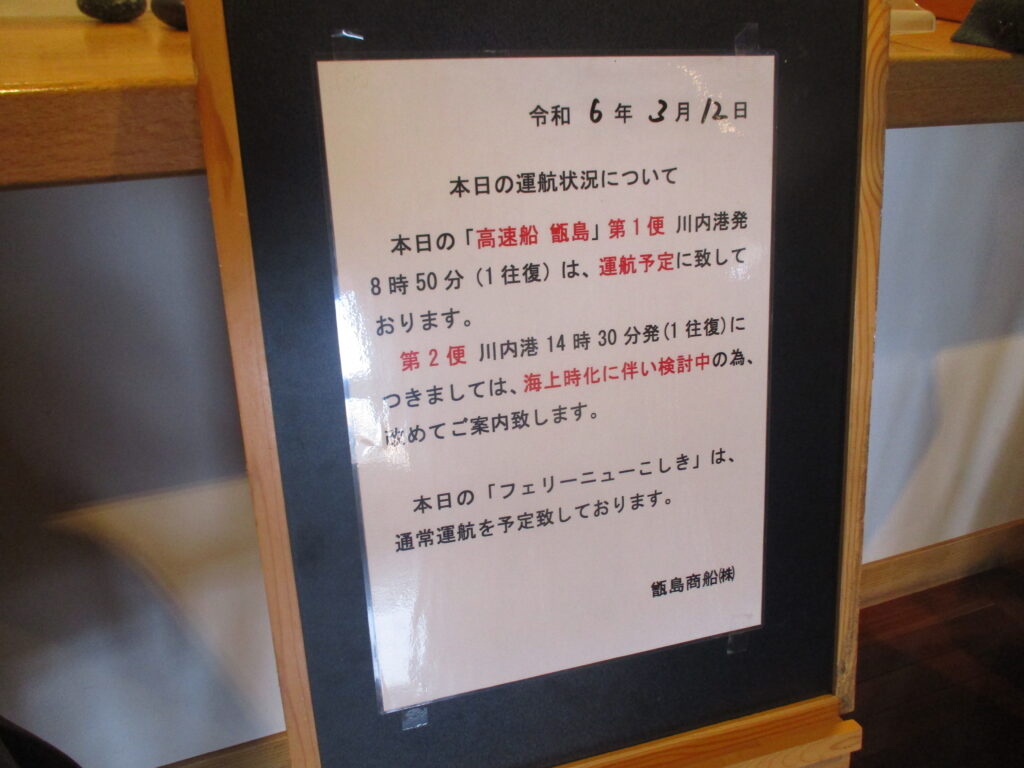 令和 6 年 3 月 12 日
本日の運航状況について
本日の「高速船 甑島」第1便 川内港発
8時50分（1往復）は、運航予定に致して
おります。
第2便 川内港14時30分発(1往復)に
つきましては、海上時化に伴い検討中の為、
改めてご案内致します。
本日の「フェリーニューこしき」は、
通常運航を予定致しております。
甑島商船㈱